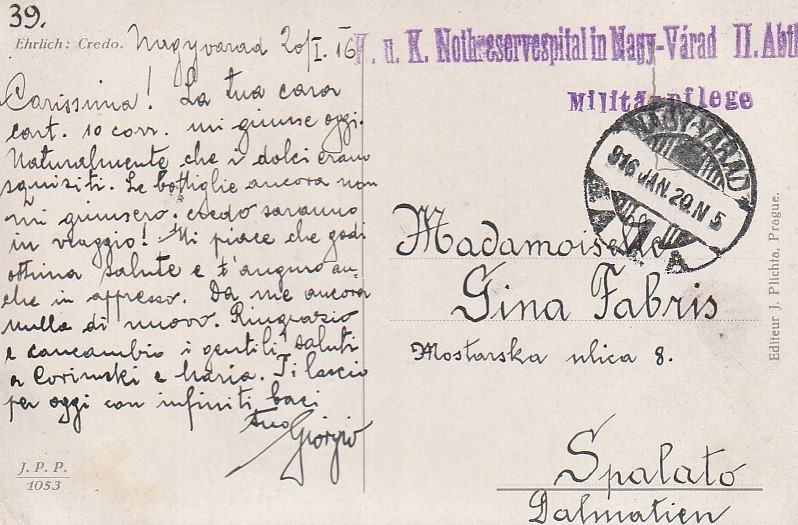 39.
Ehrlich: Credo.
Nagyvarad 20/I. 16
K. u. K. Nothreservespital in Nagy-Várad II. Abth
Militärpflege
NAGYVÁRAD
916 JAN. 20. N 5
Carissima! La tua cara
cart. 10 corr. mi giunse oggi.
Naturalmente che i dolci erano
squisiti. Le bottiglie ancora non
mi giunsero. credo saranno
in viaggio! Mi piace che godi
ottima salute e t'auguro an-
che in appresso. Da me ancora
nulla di nuovo. Ringrazio
e concambio i gentili saluti
a Corinski e Maria. Ti lascio
per oggi con infiniti baci
tuo Giorgio
J. P. P.
1053
Madamoiselle
Gina Fabris
Mostarska ulica 8.
Spalato
Dalmatien
Editeur J. Plichta, Prague.